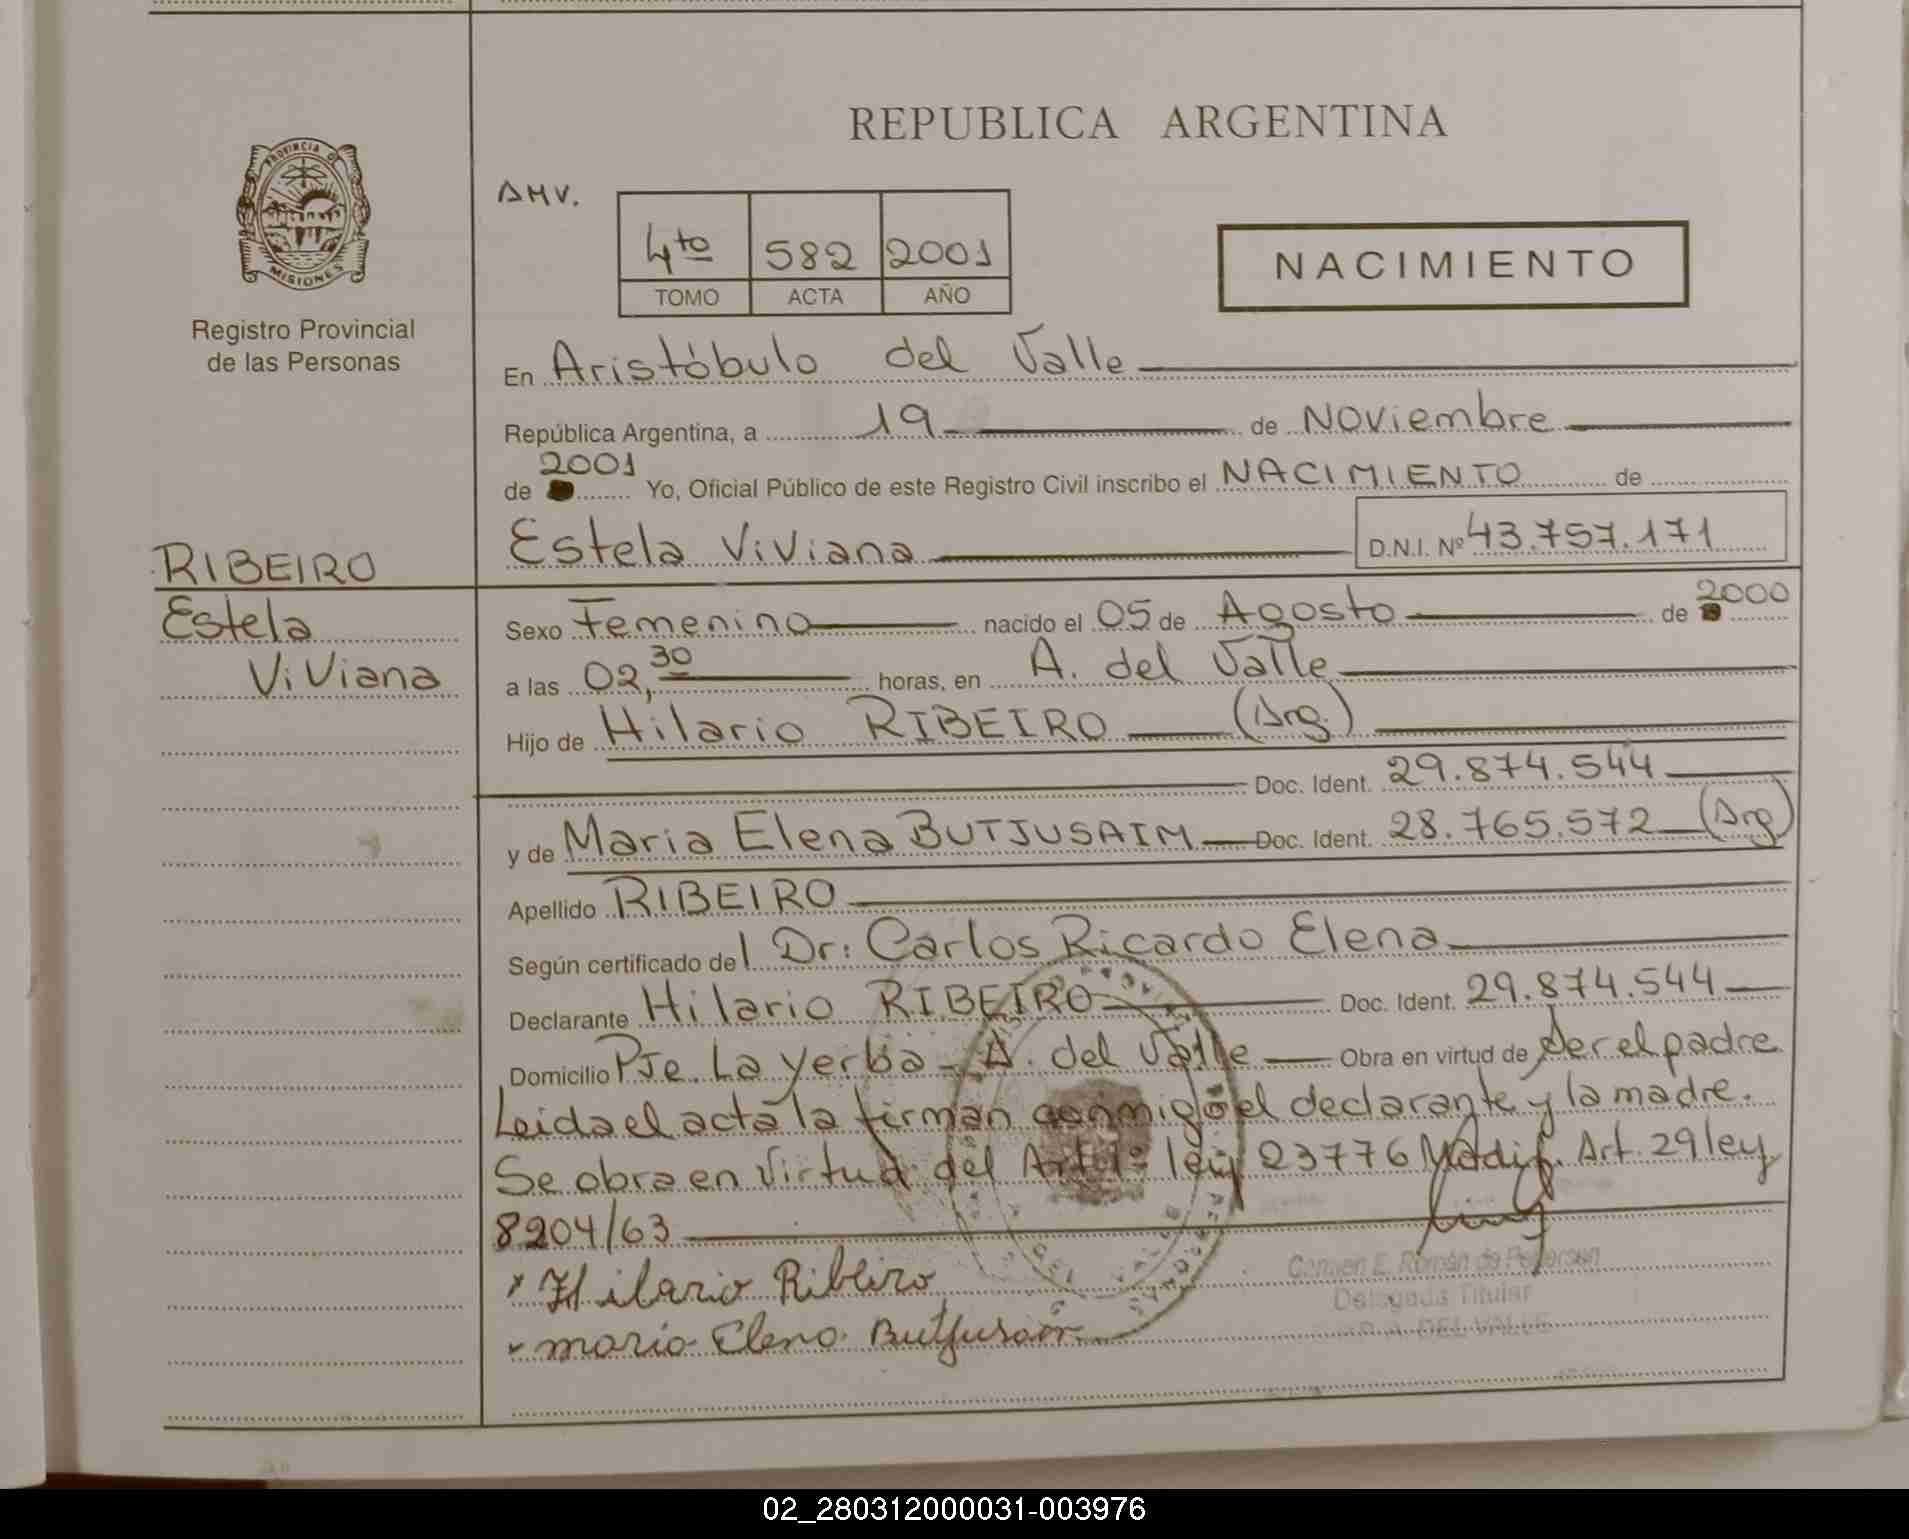 REPUBLICA ARGENTINA
PROVINCIA DE
MISIONES
Registro Provincial
de las Personas
AMV.
4to 582 2001
TOMO ACTA AÑO
NACIMIENTO
En Aristóbulo del Valle
República Argentina, a 19 de Noviembre
2001
de Yo, Oficial Público de este Registro Civil inscribo el NACIMIENTO de
Estela Viviana D.N.I. Nº 43.757.171
RIBEIRO
Estela
Viviana
Sexo Femenino nacido el 05 de Agosto de 2000
a las 02,30 horas, en A. del Valle
Hijo de Hilario RIBEIRO (Arg.)
Doc. Ident. 29.874.544
y de Maria Elena BUTJUSAIM Doc. Ident. 28.765.572 (Arg)
Apellido RIBEIRO
Según certificado del Dr: Carlos Ricardo Elena
Declarante Hilario RIBEIRO Doc. Ident. 29.874.544
Domicilio Pje. La yerba - A. del Valle Obra en virtud de ser el padre
Leida el acta la firman conmigo el declarante y la madre.
Se obra en virtud del Art 1º ley 23776 Modif. Art. 29 ley
8204/63
Hilario Ribeiro
maria Elena Butjusaim
Carmen E. Román de
Delegada Titular
A. DEL VALLE
02_280312000031-003976